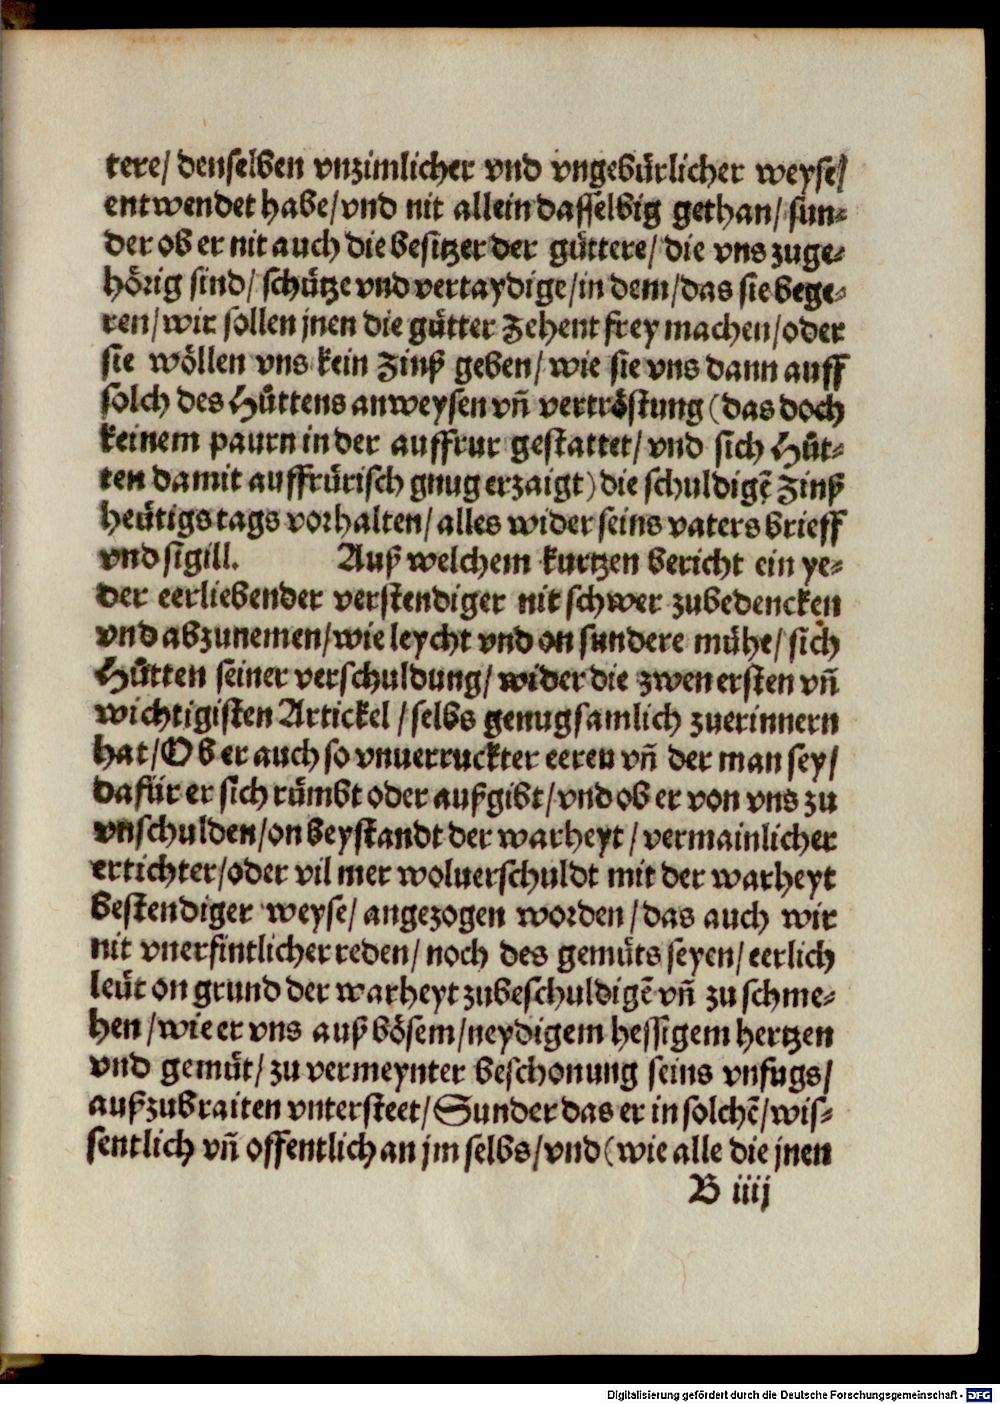 tere/ denselben vnzimlicher vnd vngebürlicher weyse/
entwendet habe/vnd nit allein dasselbig gethan/ sun⸗
der ob er nit auch die besitzer der güttere/ die vns zuge⸗
hörig sind/ schütze vnd vertaydige/in dem/das sie bege⸗
ren/wir sollen jnen die gütter Zehent frey machen/oder
sie wöllen vns kein Zinß geben/ wie sie vns dann auff
solch des Hüttens anweysen vñ vertröstung (das doch
keinem paurn in der auffrur gestattet/ vnd sich Hüt⸗
ten damit auffrürisch gnug erzaigt) die schuldigẽ Zinß
heütigs tags vorhalten/ alles wider seins vaters brieff
vnd sigill. Auß welchem kurtzen bericht ein ye⸗
der eerliebender verstendiger nit schwer zubedencken
vnd abzunemen/wie leycht vnd on sundere mühe/ sich
Hütten seiner verschuldung/ wider die zwen ersten vñ
wichtigisten Artickel /selbs genugsamlich zuerinnern
hat/Ob er auch so vnuerruckter eeren vñ der man sey/
dafür er sich rümbt oder außgibt/vnd ob er von vns zu
vnschulden/on beystandt der warheyt / vermainlicher
ertichter/oder vil mer woluerschuldt mit der warheyt
bestendiger weyse/ angezogen worden/das auch wir
nit vnerfintlicher reden/ noch des gemüts seyen/ eerlich
leüt on grund der warheyt zubeschuldigẽ vñ zu schme⸗
hen /wie er vns auß bösem/neydigem hessigem hertzen
vnd gemüt/ zu vermeynter beschonung seins vnfugs/
außzubraiten vntersteet/Sunder das er in solchẽ/wis⸗
sentlich vñ offentlich an jm selbs/vnd (wie alle die jnen
B iiij
Digitalisierung gefördert durch die Deutsche Forschungsgemeinschaft - DFG